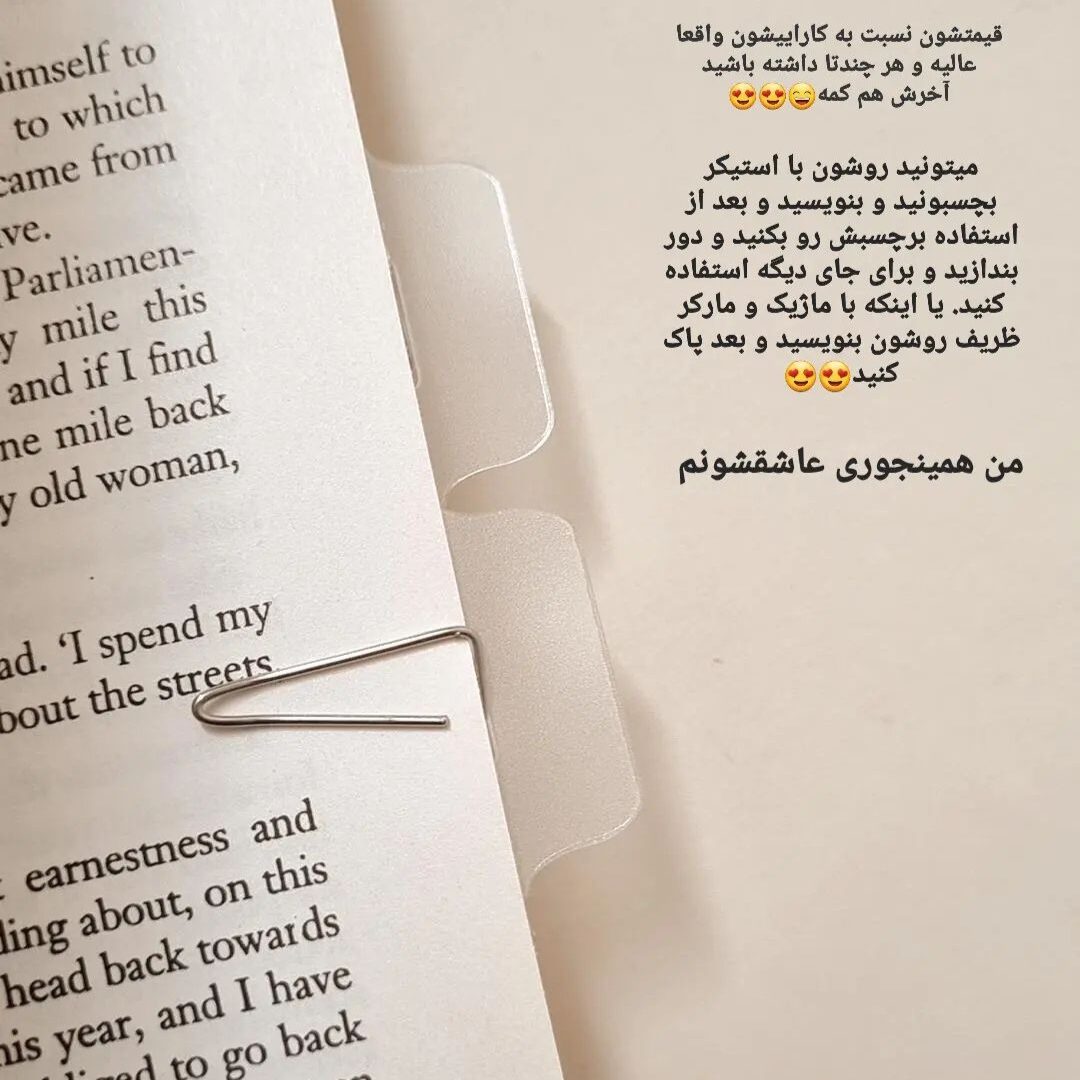 himself to
to which
came from
ve.
Parliamen-
y mile this
and if I find
ne mile back
y old woman,
ad. ‘I spend my
bout the streets
earnestness and
ling about, on this
head back towards
his year, and I have
to go back
قیمتشون نسبت به کاراییشون واقعا
عالیه و هر چندتا داشته باشید
آخرش هم کمه😄😍😍
میتونید روشون با استیکر
بچسبونید و بنویسید و بعد از
استفاده برچسبش رو بکنید و دور
بندازید و برای جای دیگه استفاده
کنید. یا اینکه با ماژیک و مارکر
ظریف روشون بنویسید و بعد پاک
کنید😍😍
من همینجوری عاشقشونم